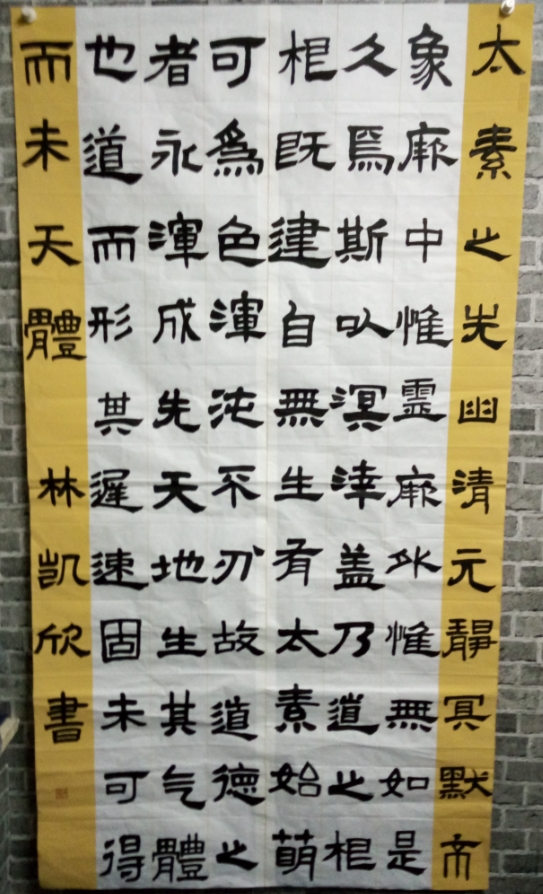 太素之先幽清元靜冥默
象厥中惟靈厥外惟無如是
久焉斯㕥溟涬盖乃道之根
根既建自無生有太素始萌
可爲色渾沌不分故道德之
者永渾成先天地生其气體
也道而形其遲速固未可得
而未天體
林凱欣書